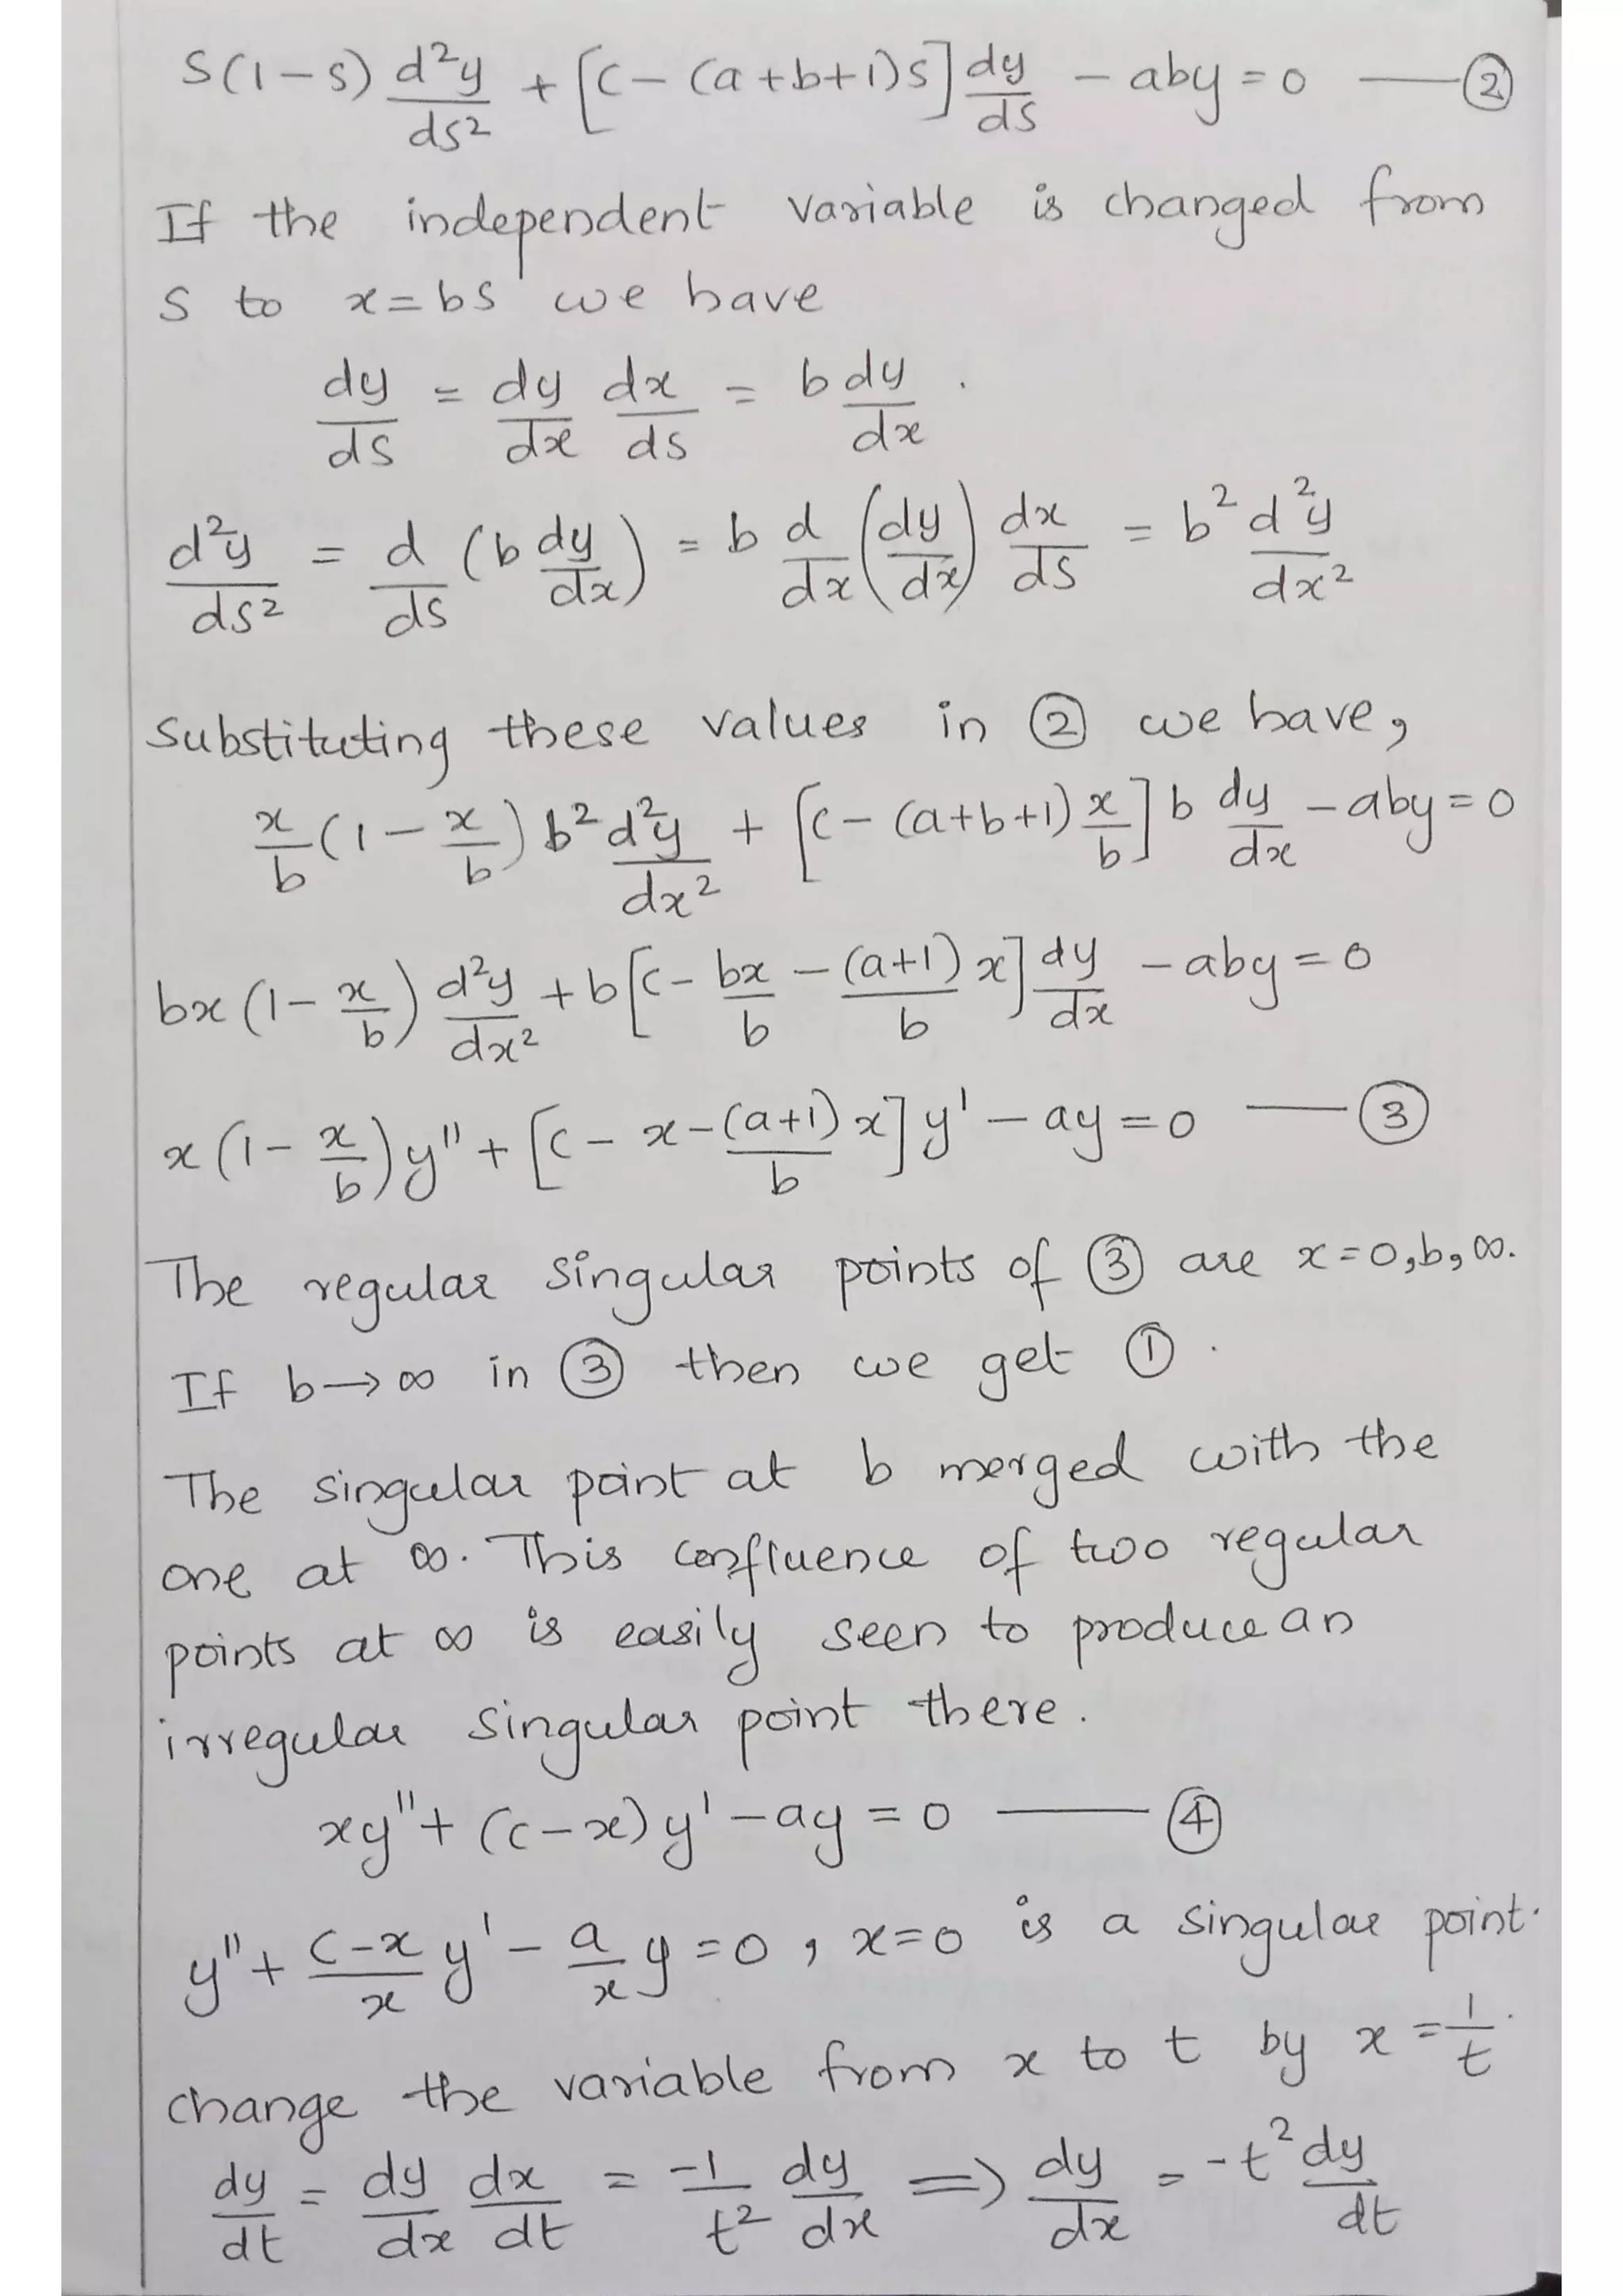 S(1-S) d²y/ds² + [c - (a+b+1)s] dy/ds - aby = 0 —— ②
If the independent variable is changed from
S to x = bs we have
dy/ds = dy/dx dx/ds = b dy/dx .
d²y/ds² = d/ds (b dy/dx) = b d/dx (dy/dx) dx/ds = b² d²y/dx²
substituting these values in ② we have,
x/b (1 - x/b) b² d²y/dx² + [c - (a+b+1) x/b] b dy/dx - aby = 0
bx (1 - x/b) d²y/dx² + b [c - bx/b - (a+1)/b x] dy/dx - aby = 0
x (1 - x/b) y'' + [c - x - (a+1)/b x] y' - ay = 0 —— ③
The regular singular points of ③ are x = 0, b, ∞.
If b → ∞ in ③ then we get ① .
The singular point at b merged with the
one at ∞. This confluence of two regular
points at ∞ is easily seen to produce an
irregular singular point there.
xy'' + (c-x) y' - ay = 0 —— ④
y'' + (c-x)/x y' - a/x y = 0 , x = 0 is a singular point.
change the variable from x to t by x = 1/t .
dy/dt = dy/dx dx/dt = -1/t² dy/dx ⇒ dy/dx = -t² dy/dt